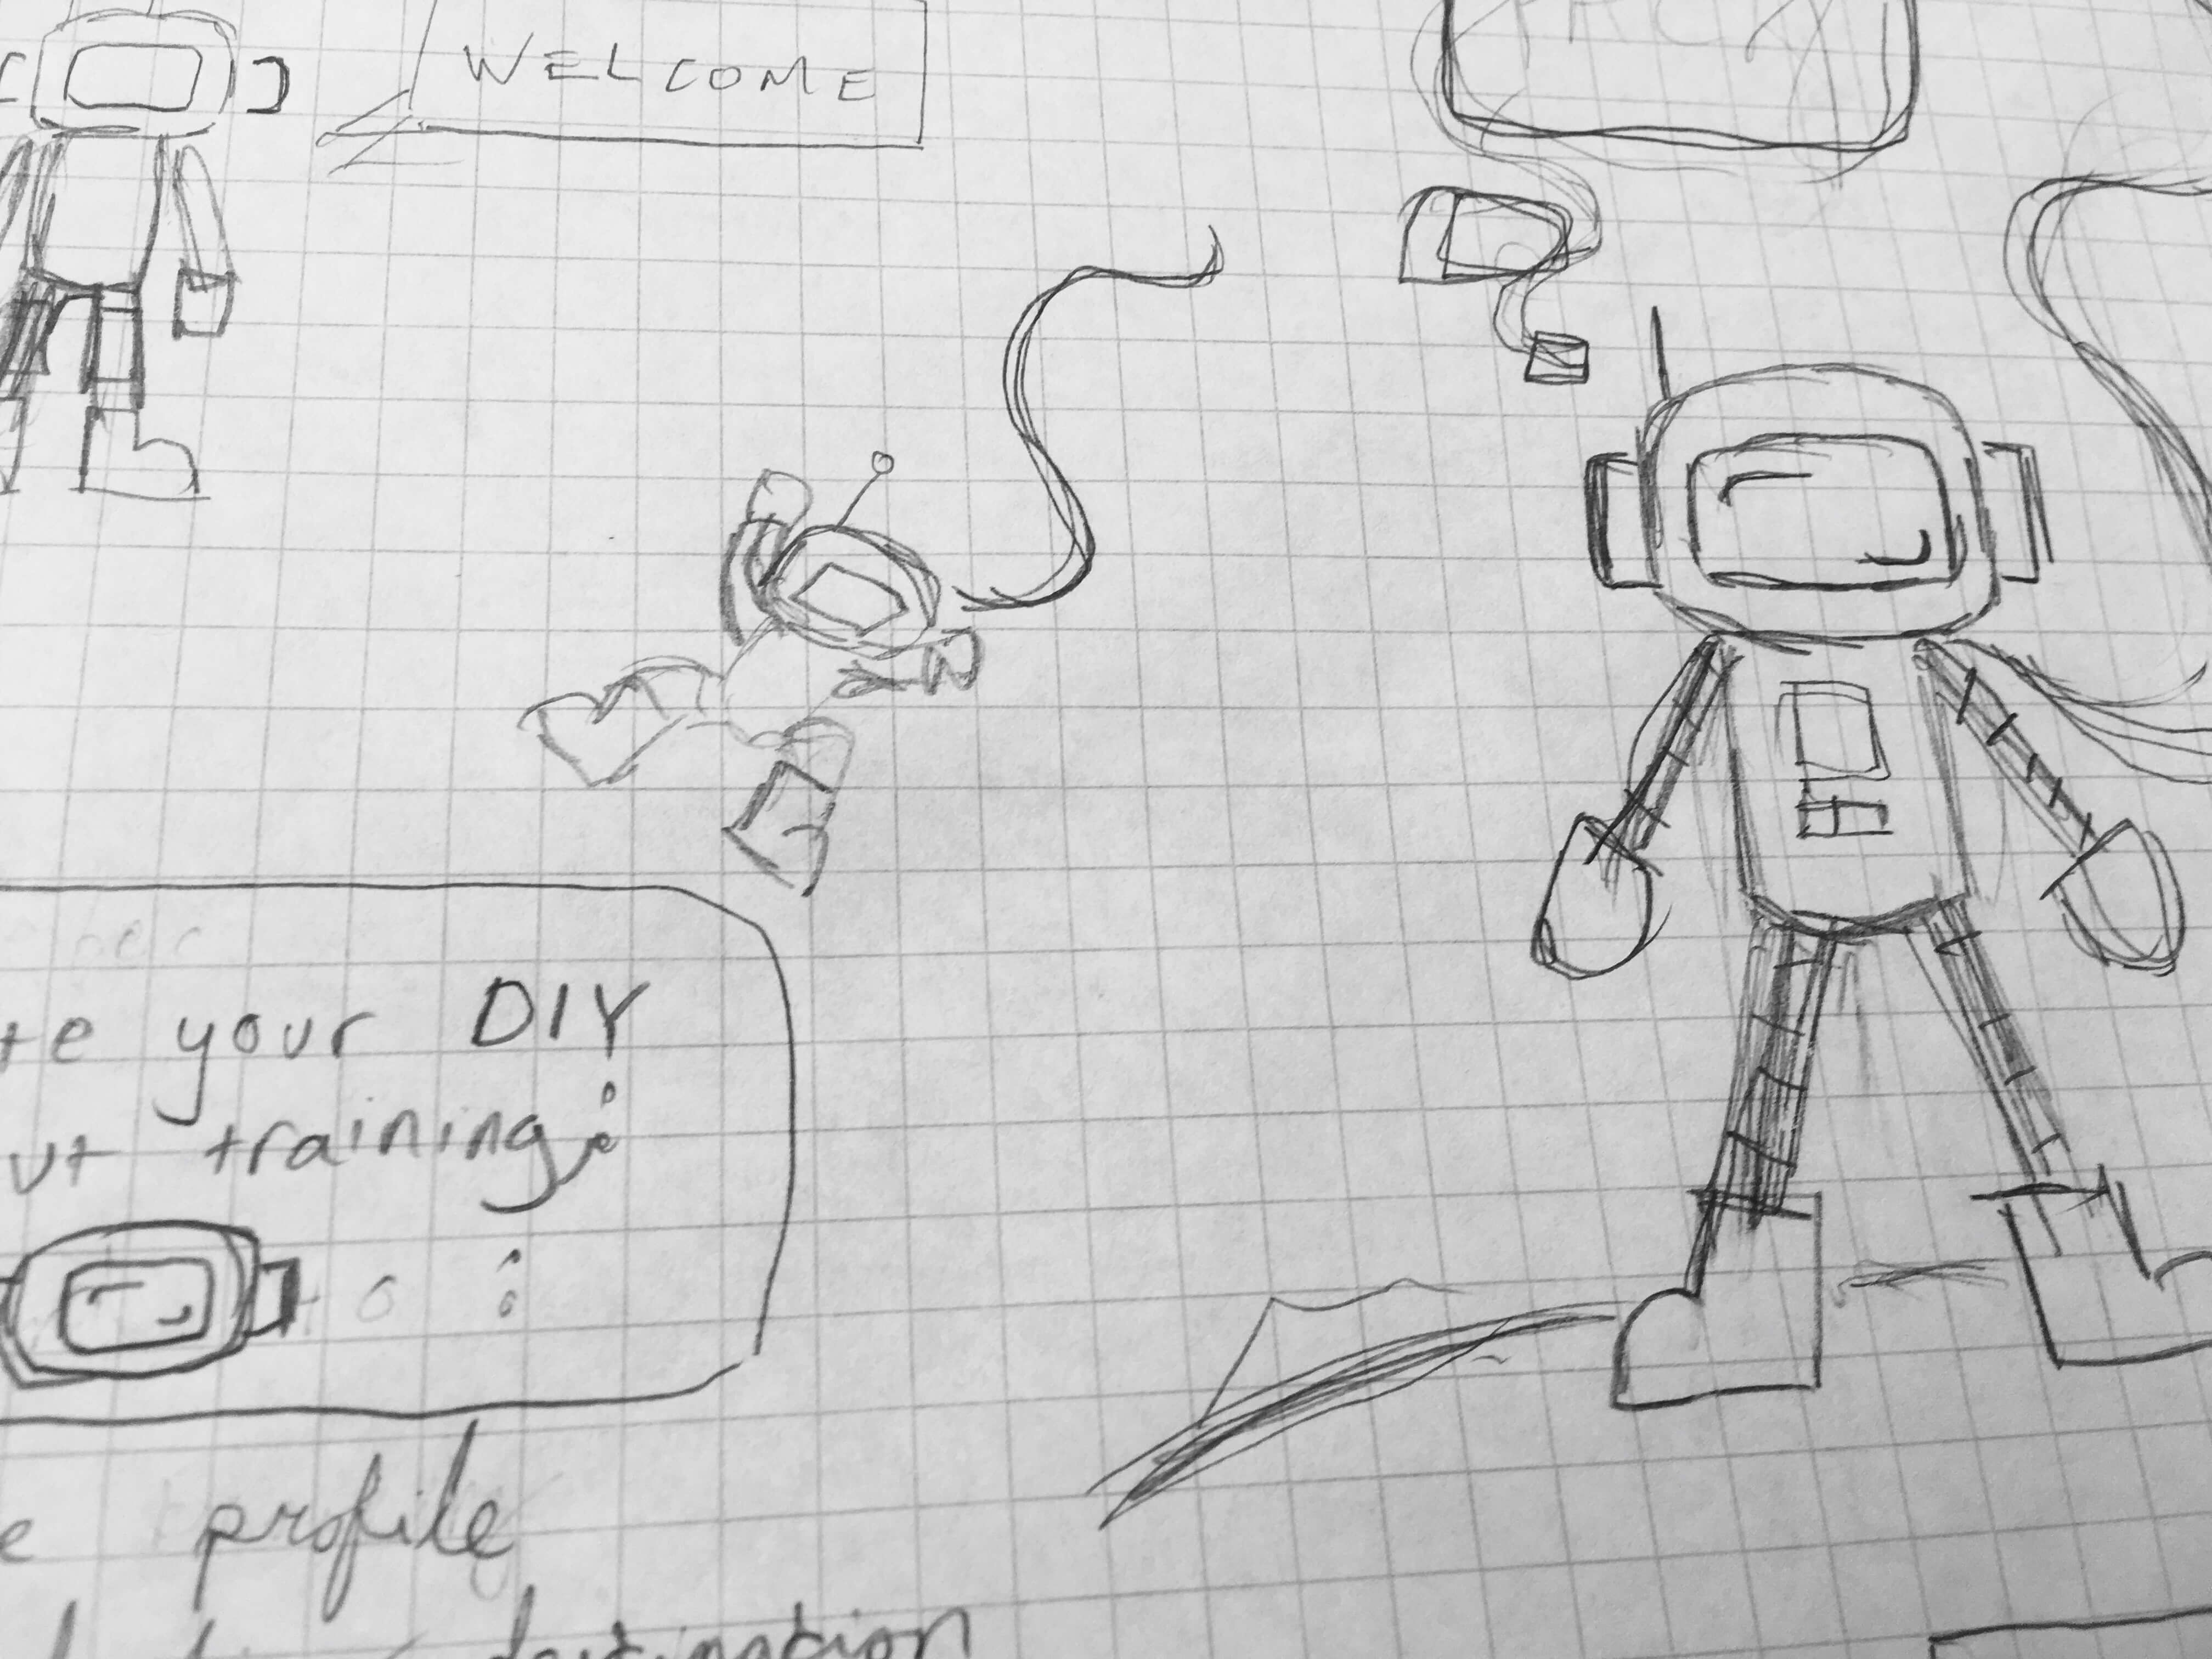 WELCOME
te your DIY
ut training
e profile
destination